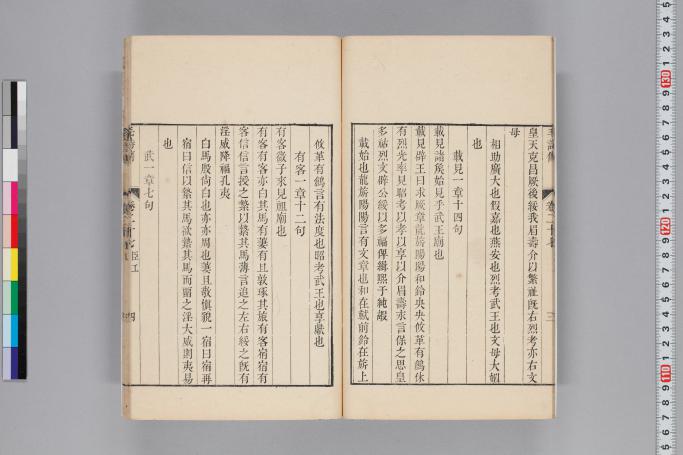 皇天克昌厥後綏我眉壽介以繁祉既右烈考亦右文
母
相助廣大也假嘉也燕安也烈考武王也文母大姒
也
載見一章十四句
載見諸矦始見乎武王廟也
載見辟王曰求厥章龍旂陽陽和鈴央央鞗革有鶬休
有烈光率見昭考以孝以享以介眉壽永言保之思皇
多祜烈文辟公綏以多福俾緝熙于純嘏
載始也龍旂陽陽言有文章也和在軾前鈴在旂上
鞗革有鶬言有法度也昭考武王也享獻也
有客一章十二句
有客微子來見祖廟也
有客有客亦白其馬有萋有且敦琢其旅有客宿宿有
客信信言授之縶以縶其馬薄言追之左右綏之既有
淫威降福孔夷
白馬殷尚白也亦亦周也萋且敬慎貌一宿曰宿再
宿曰信以縶其馬欲縶其馬而留之淫大威則夷易
也
武一章七句
臣工
四